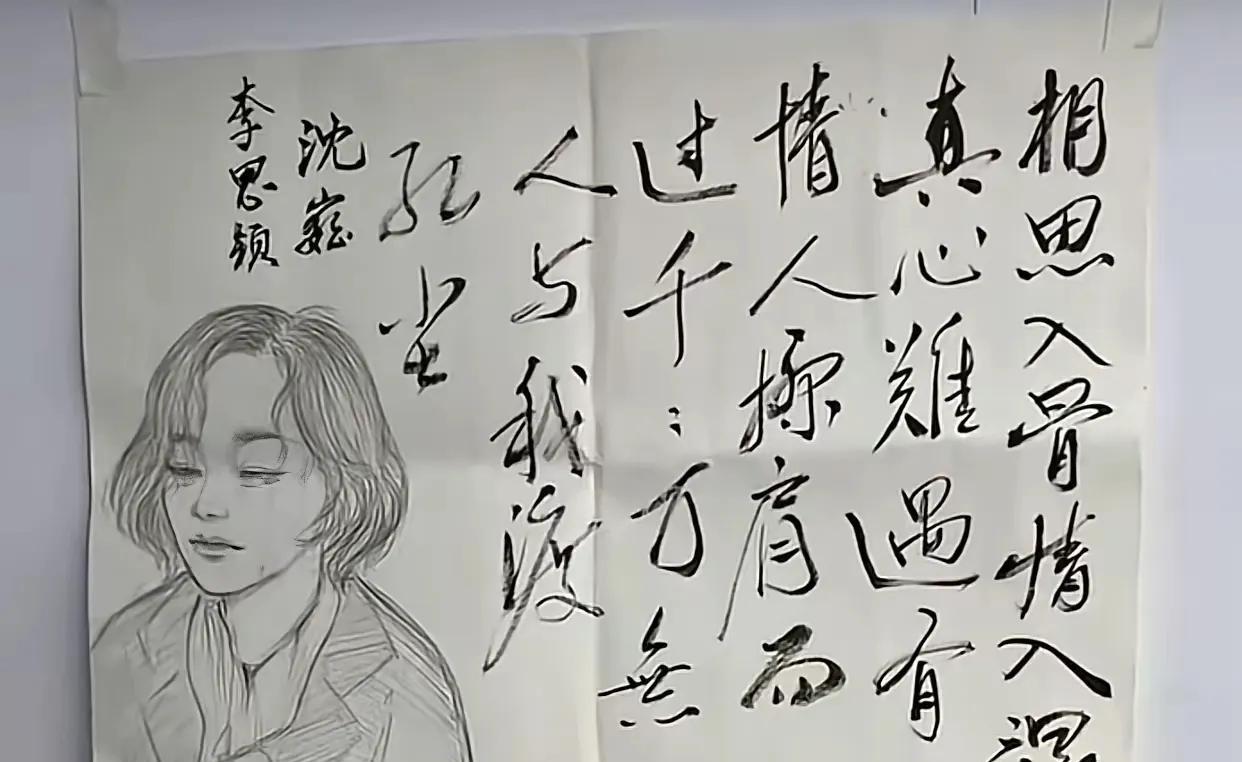 相思入骨情入
真心難遇有
情人擦肩而
过千：万無
人与我渡
红尘
沈巍
李思颖